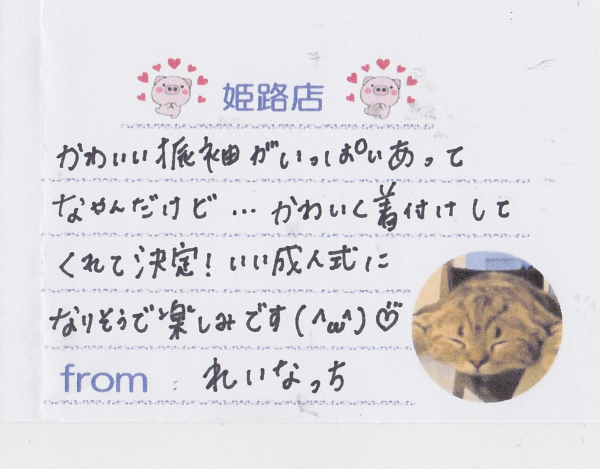 姫路店
かわいい振袖がいっぱいあって
なやんだけど…かわいく着付けして
くれて決定！いい成人式に
なりそうで楽しみです(^ω^)♡
from れいなっち